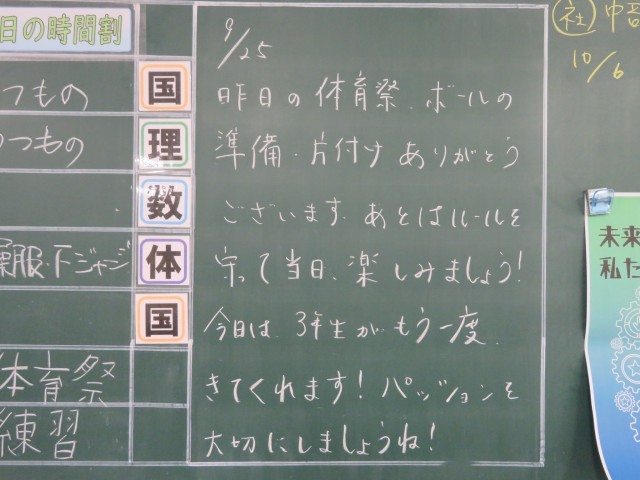 日の時間割
つもの
つもの
操服・下ジャージ
体育祭
練習
国
理
数
体
国
9/25
昨日の体育祭、ボールの
準備・片付けありがとう
ございます。あとはルールを
守って当日、楽しみましょう!
今日は、3年生がもう一度、
きてくれます!パッションを
大切にしましょうね!
社
10/6
未来
私た